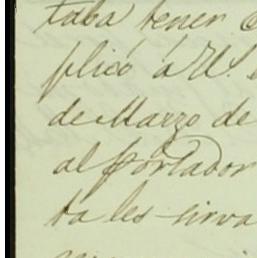 taba tener
plicó á U.
de Marzo de
al portador
ta les sirva